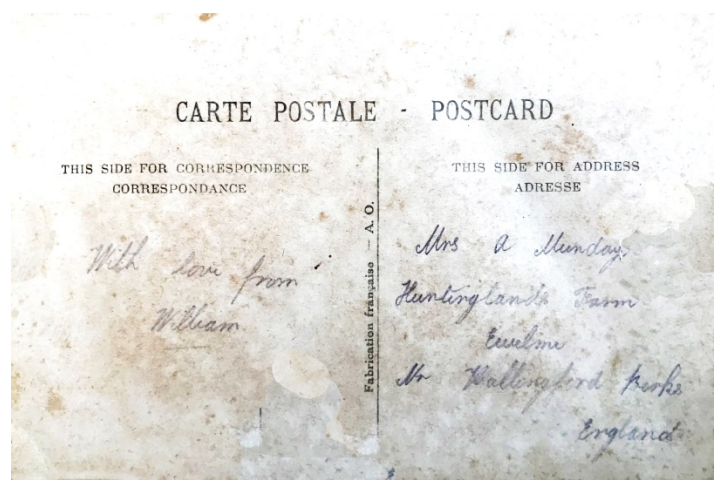 CARTE POSTALE - POSTCARD
THIS SIDE FOR CORRESPONDENCE
CORRESPONDANCE
With love from
William
Fabrication française — A. O.
THIS SIDE FOR ADDRESS
ADRESSE
Mrs A Munday
Huntinglands Farm
Ewelme
Nr Wallingford Berks
England